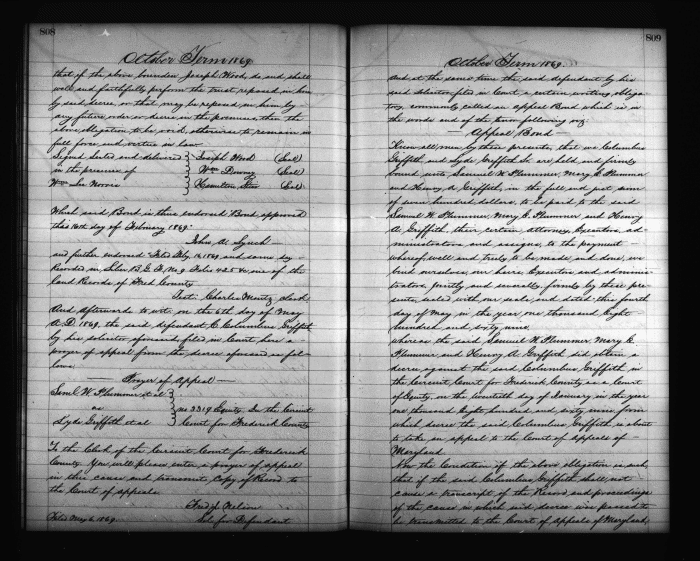 808
October Term 1869.
that if the above bounden Joseph Wood, do and shall
well and faithfully perform the trust reposed in him
by said decree, or that may be reposed in him by
any future order or decree in the premises, then the
above obligation to be void, otherwise to remain in
full force and virtue in law
Signed Sealed and delivered } Joseph Wood (Seal)
in the presence of } Wm Downey (Seal)
} Hamilton (Seal)
Which said Bond is thus endorsed Bond approved
this 16th day of February 1869.
John A. Lynch
and further endorsed Filed Feby 16 1869 and same day
Recorded in Liber No 9 Folio 425 &c one of the
land Records of Fred County.
Test: Charles Mantz, Clerk
And Afterwards to wit, on the 6th day of May
A.D. 1869, the said defendant C Columbus Griffith
by his solicitor aforesaid filed in Court here a
prayer of appeal from the decree aforesaid as fol-
lows:
Prayer of Appeal
Saml. W. Plummer et al }
vs } no 3319 Equity. In the Circuit
Lyde Griffith et al } Court for Frederick County
To the Clerk of the Circuit Court for Frederick
County. You will please enter a prayer of appeal
in this cause and transmit, Copy of Record to
the Court of appeals.
Fredk J. Nelson
Filed May 6, 1869. Sol for Defendant
809
October Term 1869.
And at the same time the said defendant by his
said solicitor filed in Court, a certain writing obliga-
tory, commonly called an Appeal Bond which is in
the words and of the tenor following viz:
Appeal Bond
Know all men by these presents, that we Columbus
Griffith, and Lyde Griffith Sr. are held and firmly
bound unto Samuel W. Plummer, Mary C. Plummer
and Henry A. Griffith, in the full and just sum
of seven hundred dollars, to be paid to the said
Samuel W. Plummer, Mary C. Plummer and Henry
A. Griffith, their certain attorney, Executors, ad-
ministrators and assigns, to the payment
whereof, well and truly to be made and done, we
bind ourselves, our heirs, Executors and adminis-
trators, jointly and severally, firmly by these pre-
sents, sealed with our seals, and dated this fourth
day of May in the year one thousand Eight
hundred and sixty nine.
Whereas the said Samuel W. Plummer, Mary C.
Plummer and Henry A. Griffith did obtain a
decree against the said Columbus Griffith in
the Circuit Court for Frederick County as a Court
of Equity, on the twentieth day of January in the year
one thousand Eight hundred and sixty nine from
which decree the said Columbus Griffith is about
to take an appeal to the Court of appeals of
Maryland.
Now the Condition of the above obligation is such,
that if the said Columbus Griffith shall not
cause a transcript of the Record and proceedings
of the cause in which said decree was passed to
be transmitted to the Court of Appeals of Maryland,